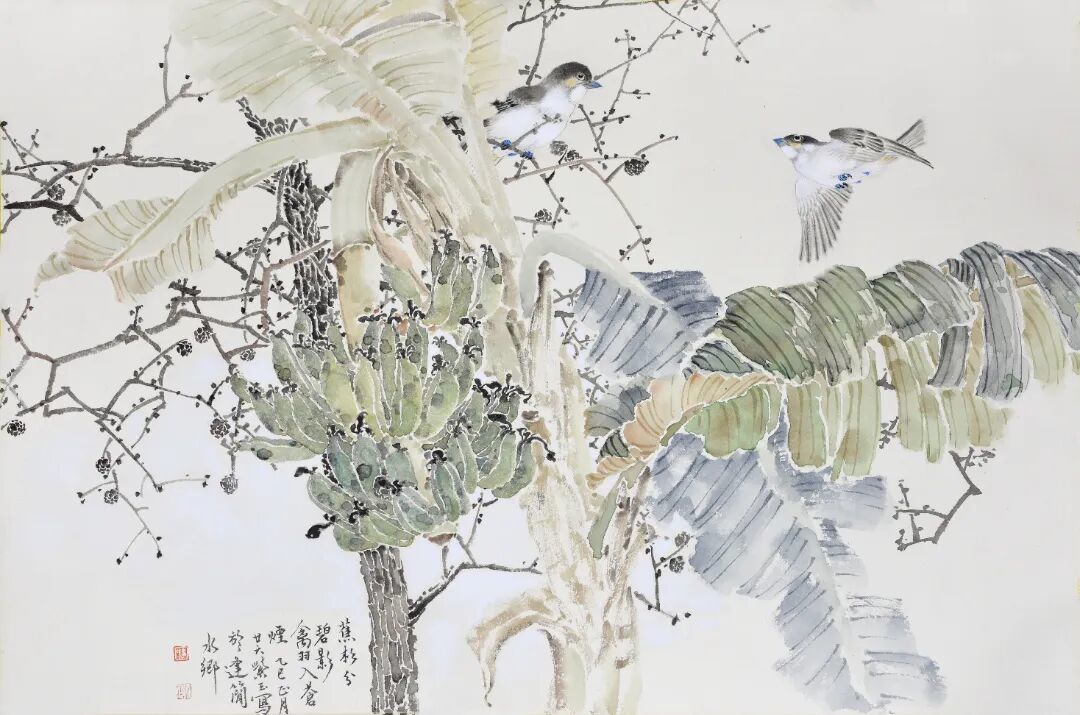 蕉杉分
碧影
禽羽入蒼
煙 乙巳正月
廿六 玉寫
於逢簡
水鄉